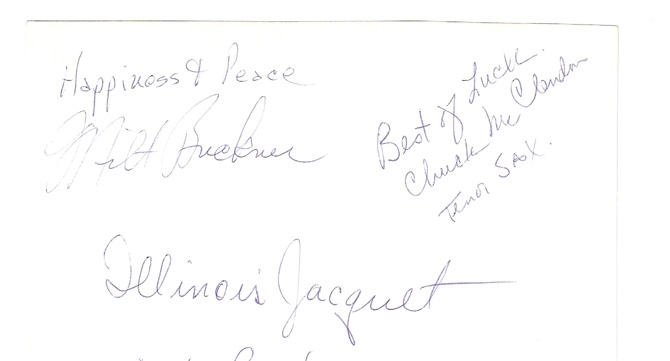 Happiness & Peace
Milt Buckner
Best of Luck.
Chuck Mc Clendon
Tenor Sax.
Illinois Jacquet